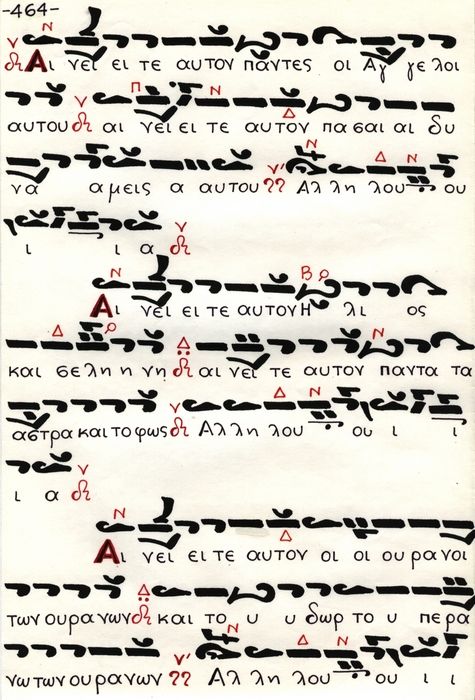 -464-
Αι νει ει τε αυτον παντες οι Αγ γελοι
αυτου αι νει ει τε αυτον πασαι αι δυ
να α μεις α αυτου Αλ λη λου ου
ι ι α
Αι νει ει τε αυτον Η λι ος
και σελη η νη αι νει τε αυτον παντα τα
αστρα και το φως Αλ λη λου ου ι ι
ι α
Αι νει ει τε αυτον οι οι ουρανοι
των ουρανων και το υ υ δωρ το υ περα
νω των ουρανων Αλ λη λου ου ι ι